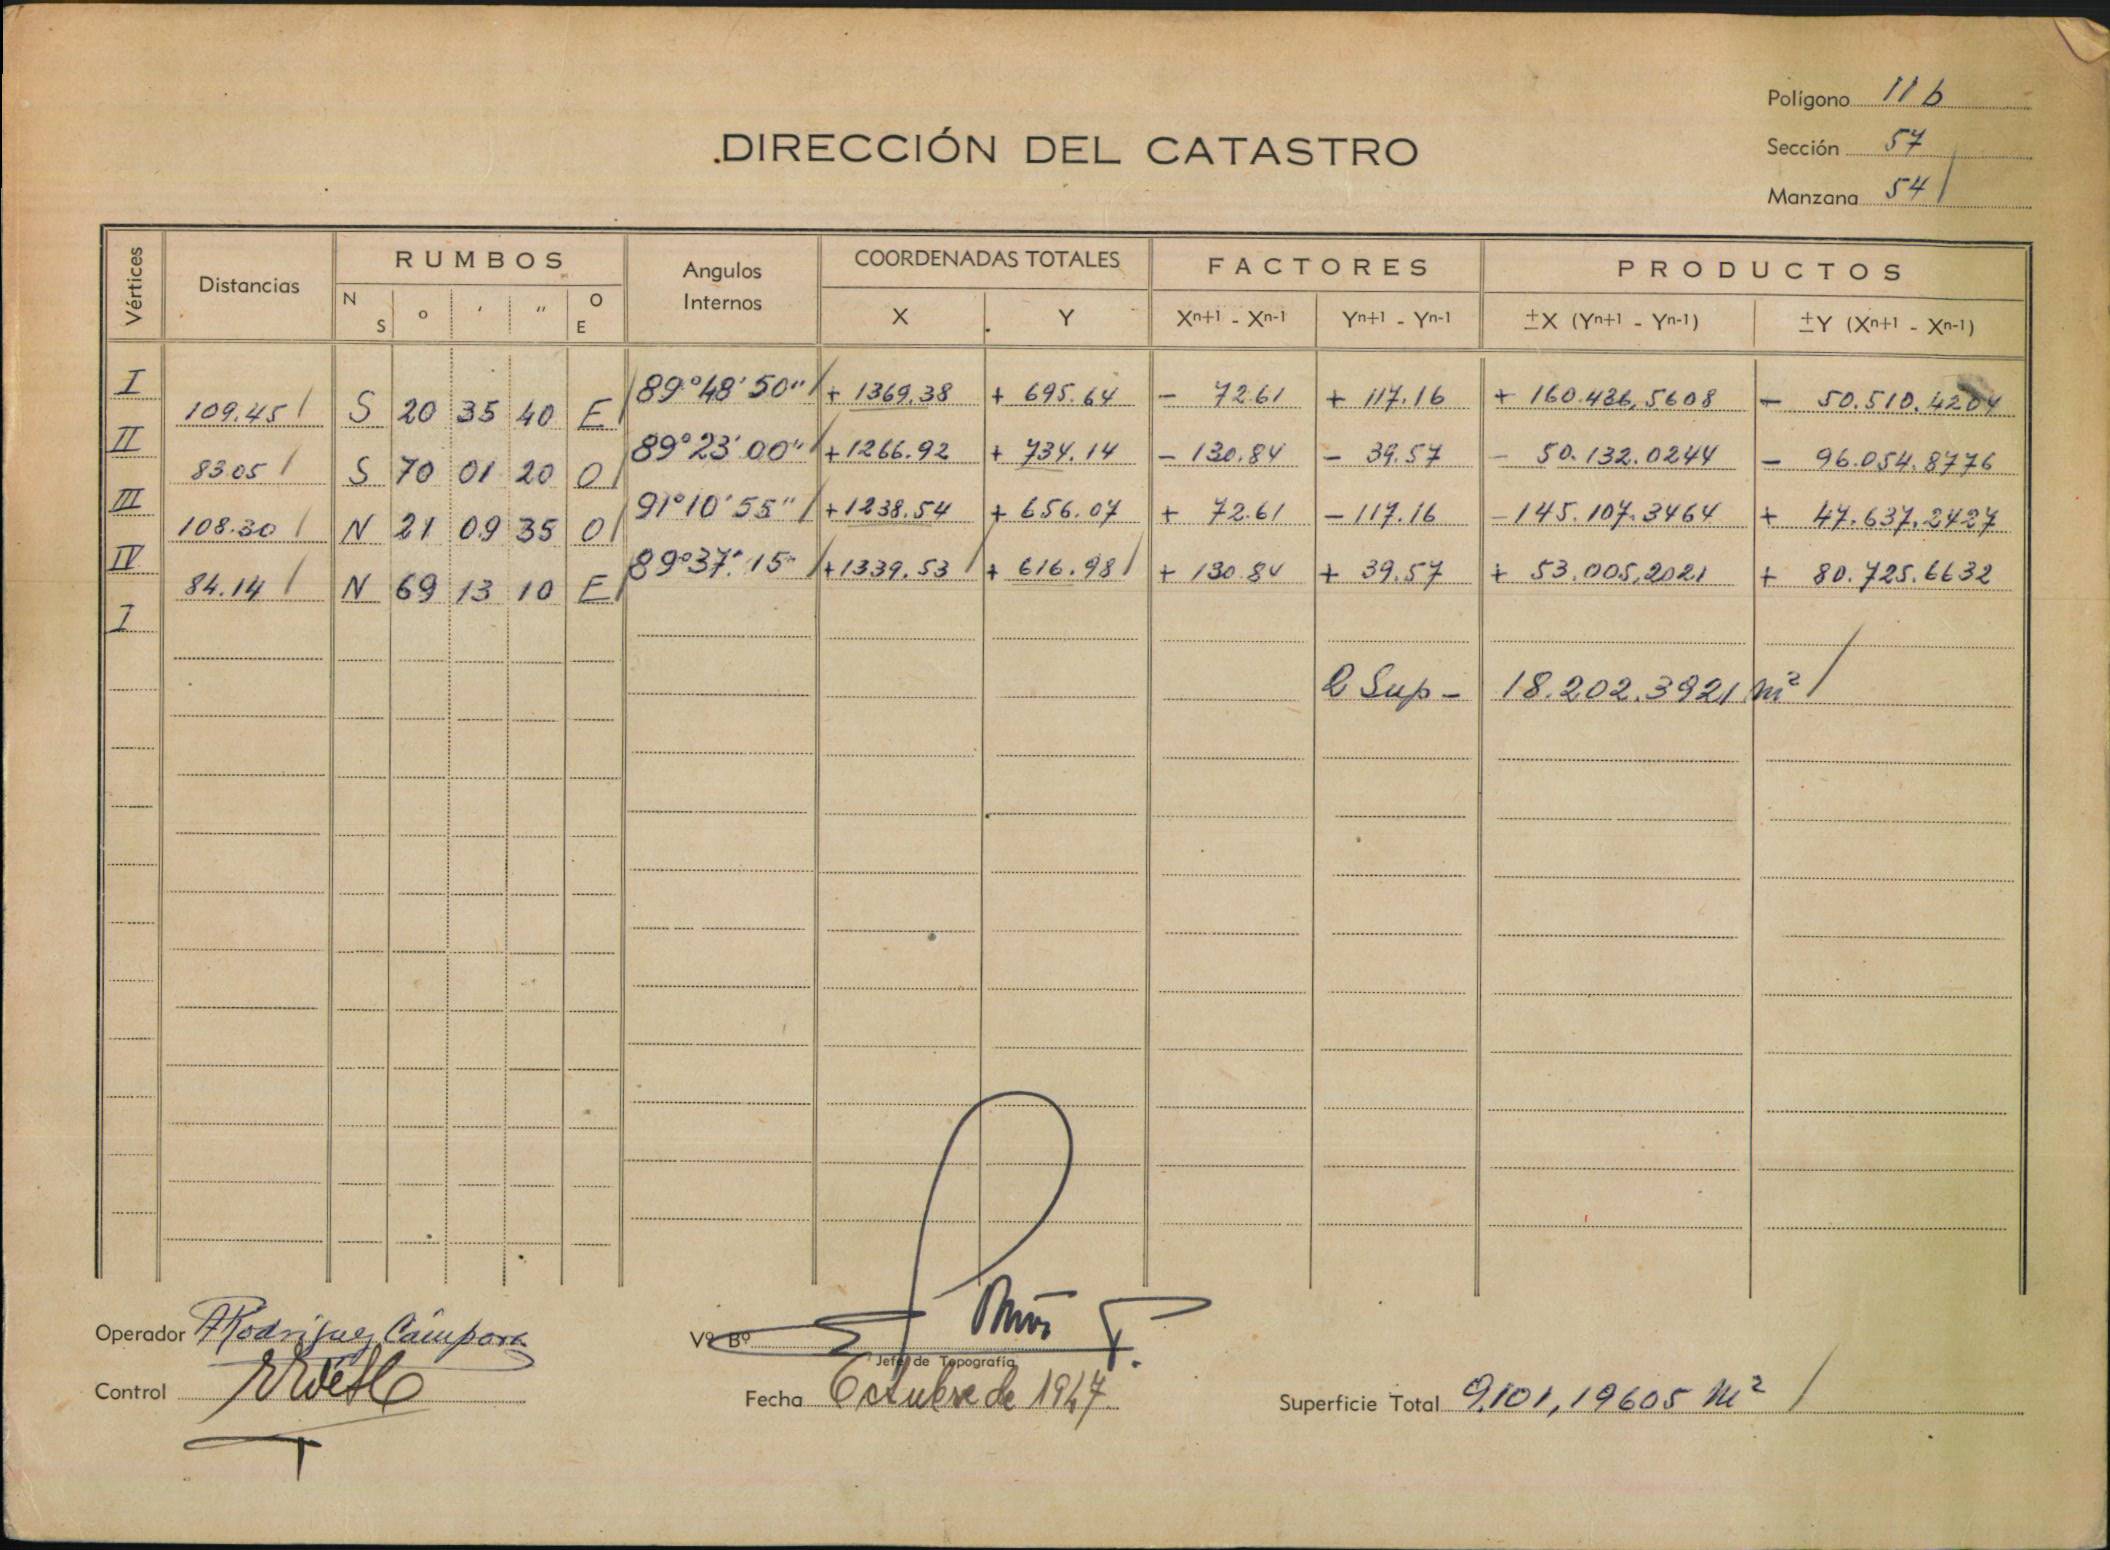 Polígono 11 b
.DIRECCIÓN DEL CATASTRO
Sección 57
Manzana 54
Vértices Distancias RUMBOS Angulos Internos COORDENADAS TOTALES FACTORES PRODUCTOS
N S º ' " O E X Y Xⁿ⁺¹ - Xⁿ⁻¹ Yⁿ⁺¹ - Yⁿ⁻¹ ±X (Yⁿ⁺¹ - Yⁿ⁻¹) ±Y (Xⁿ⁺¹ - Xⁿ⁻¹)
I 89º48'50" + 1369.38 + 695.64 - 72.61 + 117.16 + 160.436,5608 - 50.510.4204
109.45 S 20 35 40 E
II 89º23'00" + 1266.92 + 734.14 - 130.84 - 39.57 - 50.132.0244 - 96.054.8776
83.05 S 70 01 20 O
III 91º10'55" + 1238.54 + 656.07 + 72.61 - 117.16 - 145.107.3464 + 47.637.2427
108.30 N 21 09 35 O
IV 89º37'15" + 1339.53 + 616.98 + 130.84 + 39.57 + 53.005,2021 + 80.725.6632
84.14 N 69 13 10 E
I
2 Sup - 18.202.3921 m²
Operador Rodriguez Cámpora
Vº Bº
Jefe de Topografía
Control
Fecha Octubre de 1947
Superficie Total 9.101,19605 m²